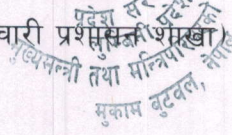 चारी प्रशासन शाखा)
प्रदेश
मुख्यमन्त्री तथा मन्त्रिपरिषद्को
मुकाम बुटवल, नेपाल